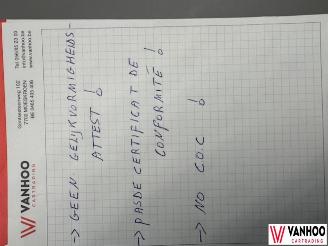 -> GEEN GELIJKVORMIGHEIDS-
ATTEST !
-> PAS DE CERTIFICAT DE
CONFORMITÉ !
-> NO C.O.C !
VANHOO
CARTRADING
7700 MOESKROEN
Tel 056/85 23 09
info@vanhoo.be
www.vanhoo.be
VANHOO
CARTRADING